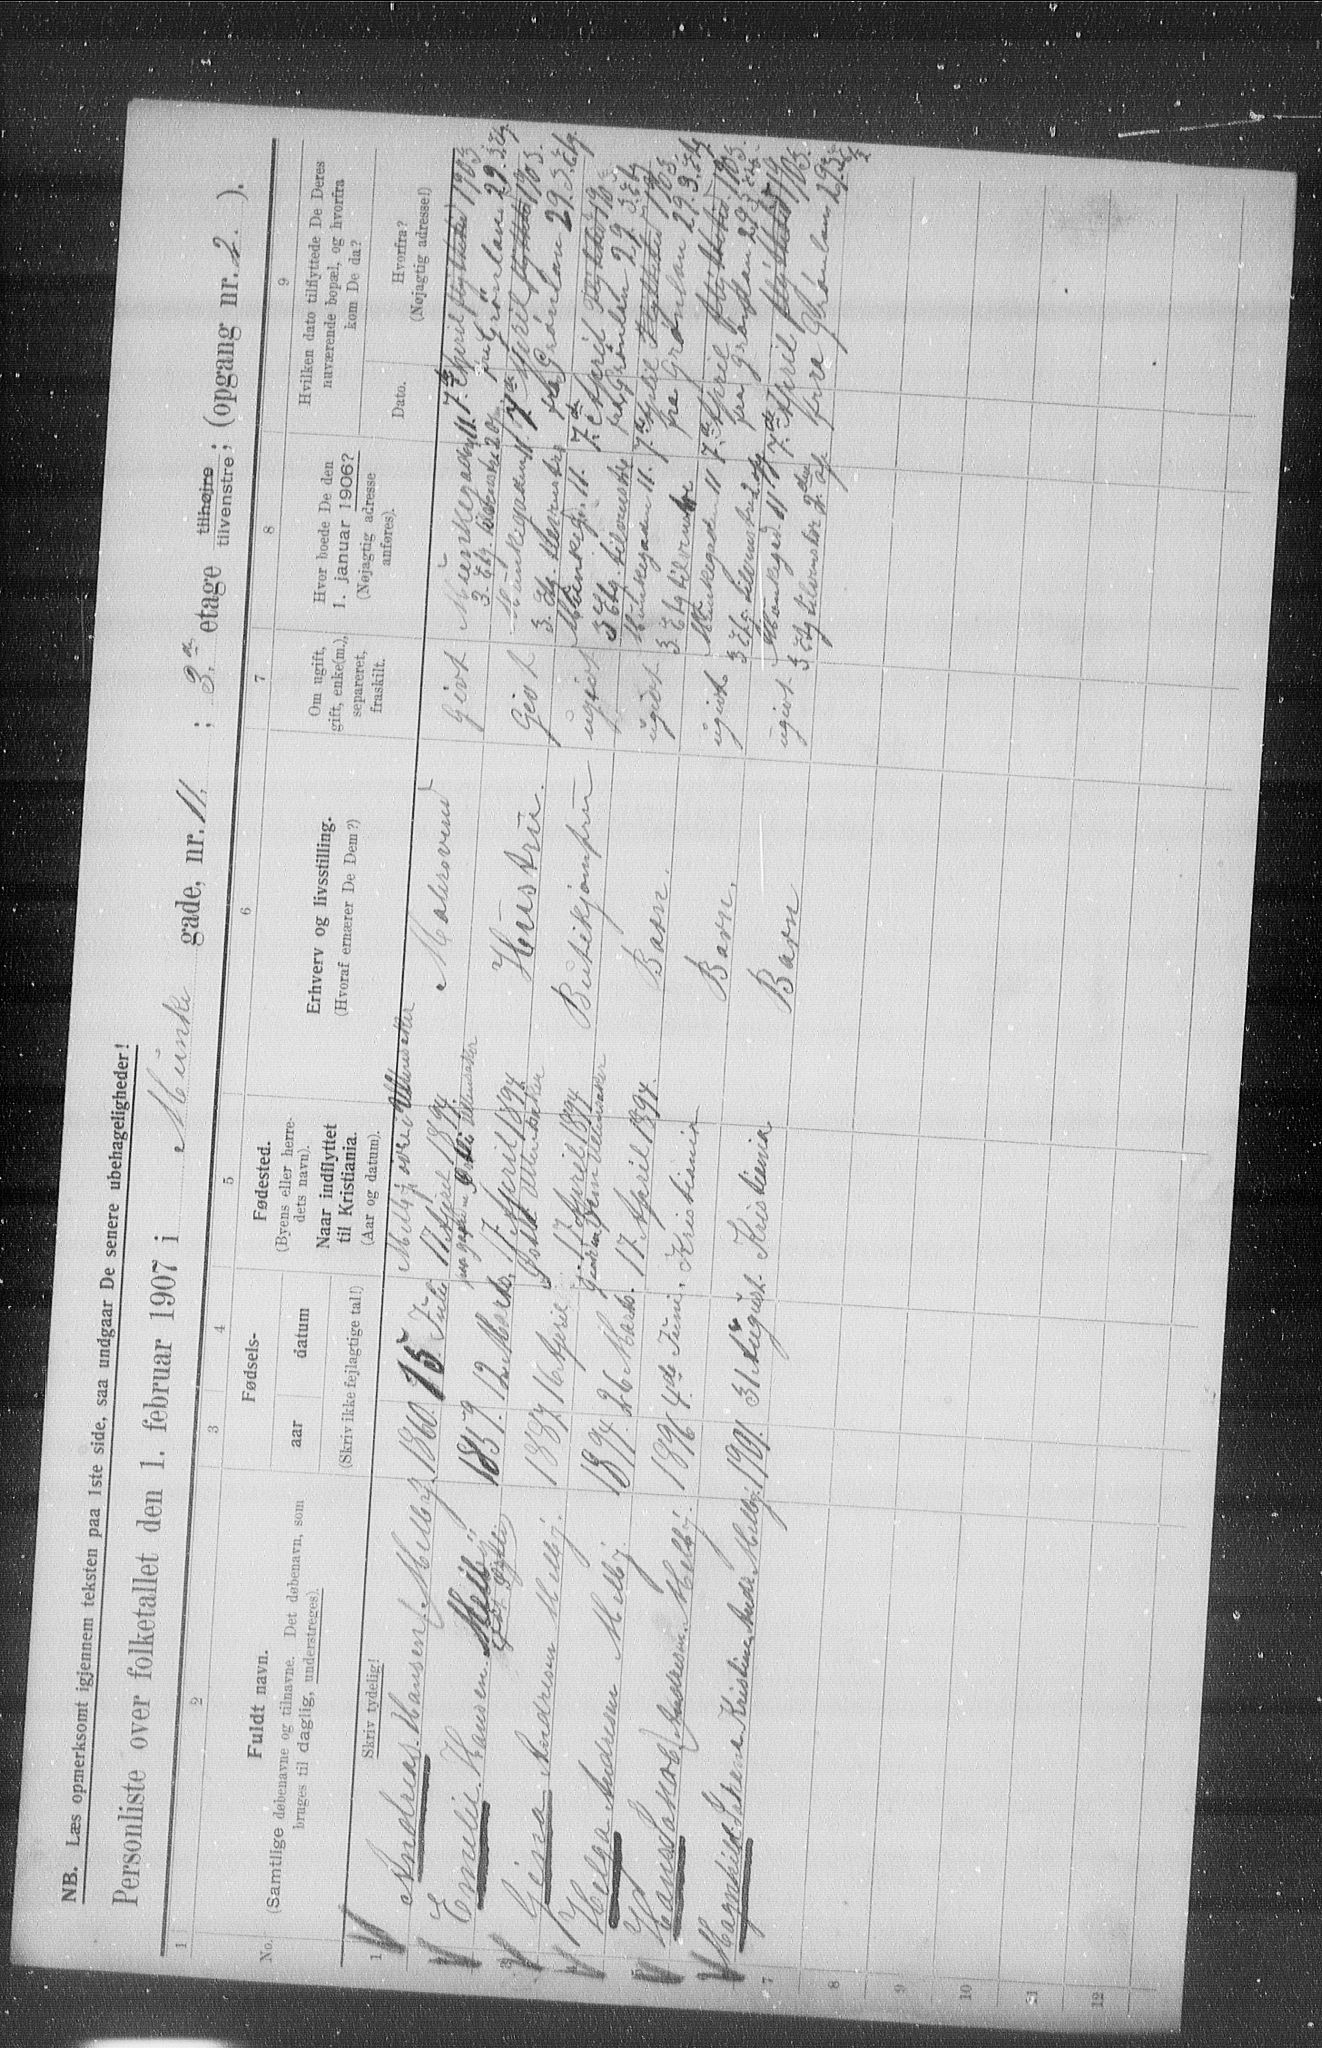 NB. Læs opmerksomt igjennem teksten paa 1ste side, saa undgaar De senere ubehageligheder!
Personliste over folketallet den 1. februar 1907 i Münke gade, nr. 11, ; 3die etage tilhøjre tilvenstre; (opgang nr. 2. ).
1 2 3 4 5 6 7 8 9
No. Fuldt navn.
(Samtlige døbenavne og tilnavne. Det døbenavn, som
bruges til daglig, understreges).
Skriv tydelig!
Fødsels-
aar datum
(Skriv ikke fejlagtige tal!)
Fødested.
(Byens eller herre-
dets navn).
Naar indflyttet
til Kristiania.
(Aar og datum).
Erhverv og livsstilling.
(Hvoraf ernærer De Dem?)
Om ugift,
gift, enke(m.),
separeret,
fraskilt.
Hvor boede De den
1. januar 1906?
(Nøjagtig adresse
anføres).
Hvilken dato tilflyttede De Deres
nuværende bopæl, og hvorfra
kom De da?
Dato. Hvorfra?
(Nøjagtig adresse!)
1 Andreas Hansen Melby. 1860. 15 Juli Melby Ullensaker 17 April 1894. Malersvend Givt Münkegaden 11. 3. Etg. 7de April flyttet 1905 fra Grønland 29. 3. Etg.
Emelie Hansen Melby 1857. 12 Marts. Ullensaker 17 April 1894 Hustrü. Givt Münkegaden 11 3. Etg. 7de April flyttet 1905. fra Grønland 29 3. Etg.
3 Gina Andresen Melby. 1887 16 April Ullensaker 17 April 1894 Butikjomfru ugivt Münkeg. 11. 3 Etg. tilvenstre 7de April flyttet 1905 fra Grønland 29. 3 Etg
Helga Andresen Melby. 1894. 26 Marts. Ullensaker 17 April 1894. Barn. ugivt Münkegaden 11. 3 Etg tilvenstre 7de April flyttet 1905. fra Grønland 29. 3 Etg
Hans Jakob Andresen Melby. 1896 4de Juni. Kristiania Barn. ugivt Münkegaden 11 3 Etg. tilvenstre 7de April flyttet 1905. fra Grønland 29 3 Etg.
Magnhild Kristine Andr. Melby. 1901. 31 August. Kristiania Barn ugivt. Münkegad. 11 3 Etg tilvenstre 7de April flyttet 1905. fra Grønland 29.
7
8
9
10
11
12